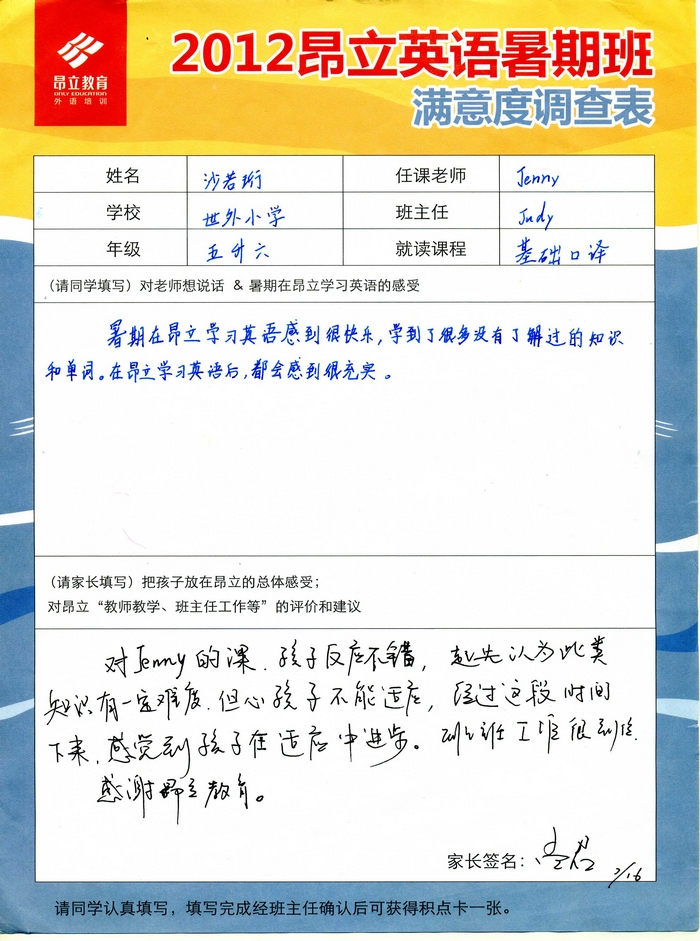 昂立教育
ONLY EDUCATION
外语培训
2012昂立英语暑期班
满意度调查表
姓名 沙若珩 任课老师 Jenny
学校 世外小学 班主任 Judy
年级 五升六 就读课程 基础口译
(请同学填写)对老师想说话 & 暑期在昂立学习英语的感受
暑期在昂立学习英语感到很快乐,学到了很多没有了解过的知识
和单词。在昂立学习英语后,都会感到很充实。
(请家长填写)把孩子放在昂立的总体感受;
对昂立“教师教学、班主任工作等”的评价和建议
对Jenny的课.孩子反应不错,起先认为此类
知识有一定难度.但心孩子不能适应,经过这段时间
下来.感觉到孩子在适应中进步。班主任工作很到位.
感谢昂立教育。
家长签名:
请同学认真填写,填写完成经班主任确认后可获得积点卡一张。